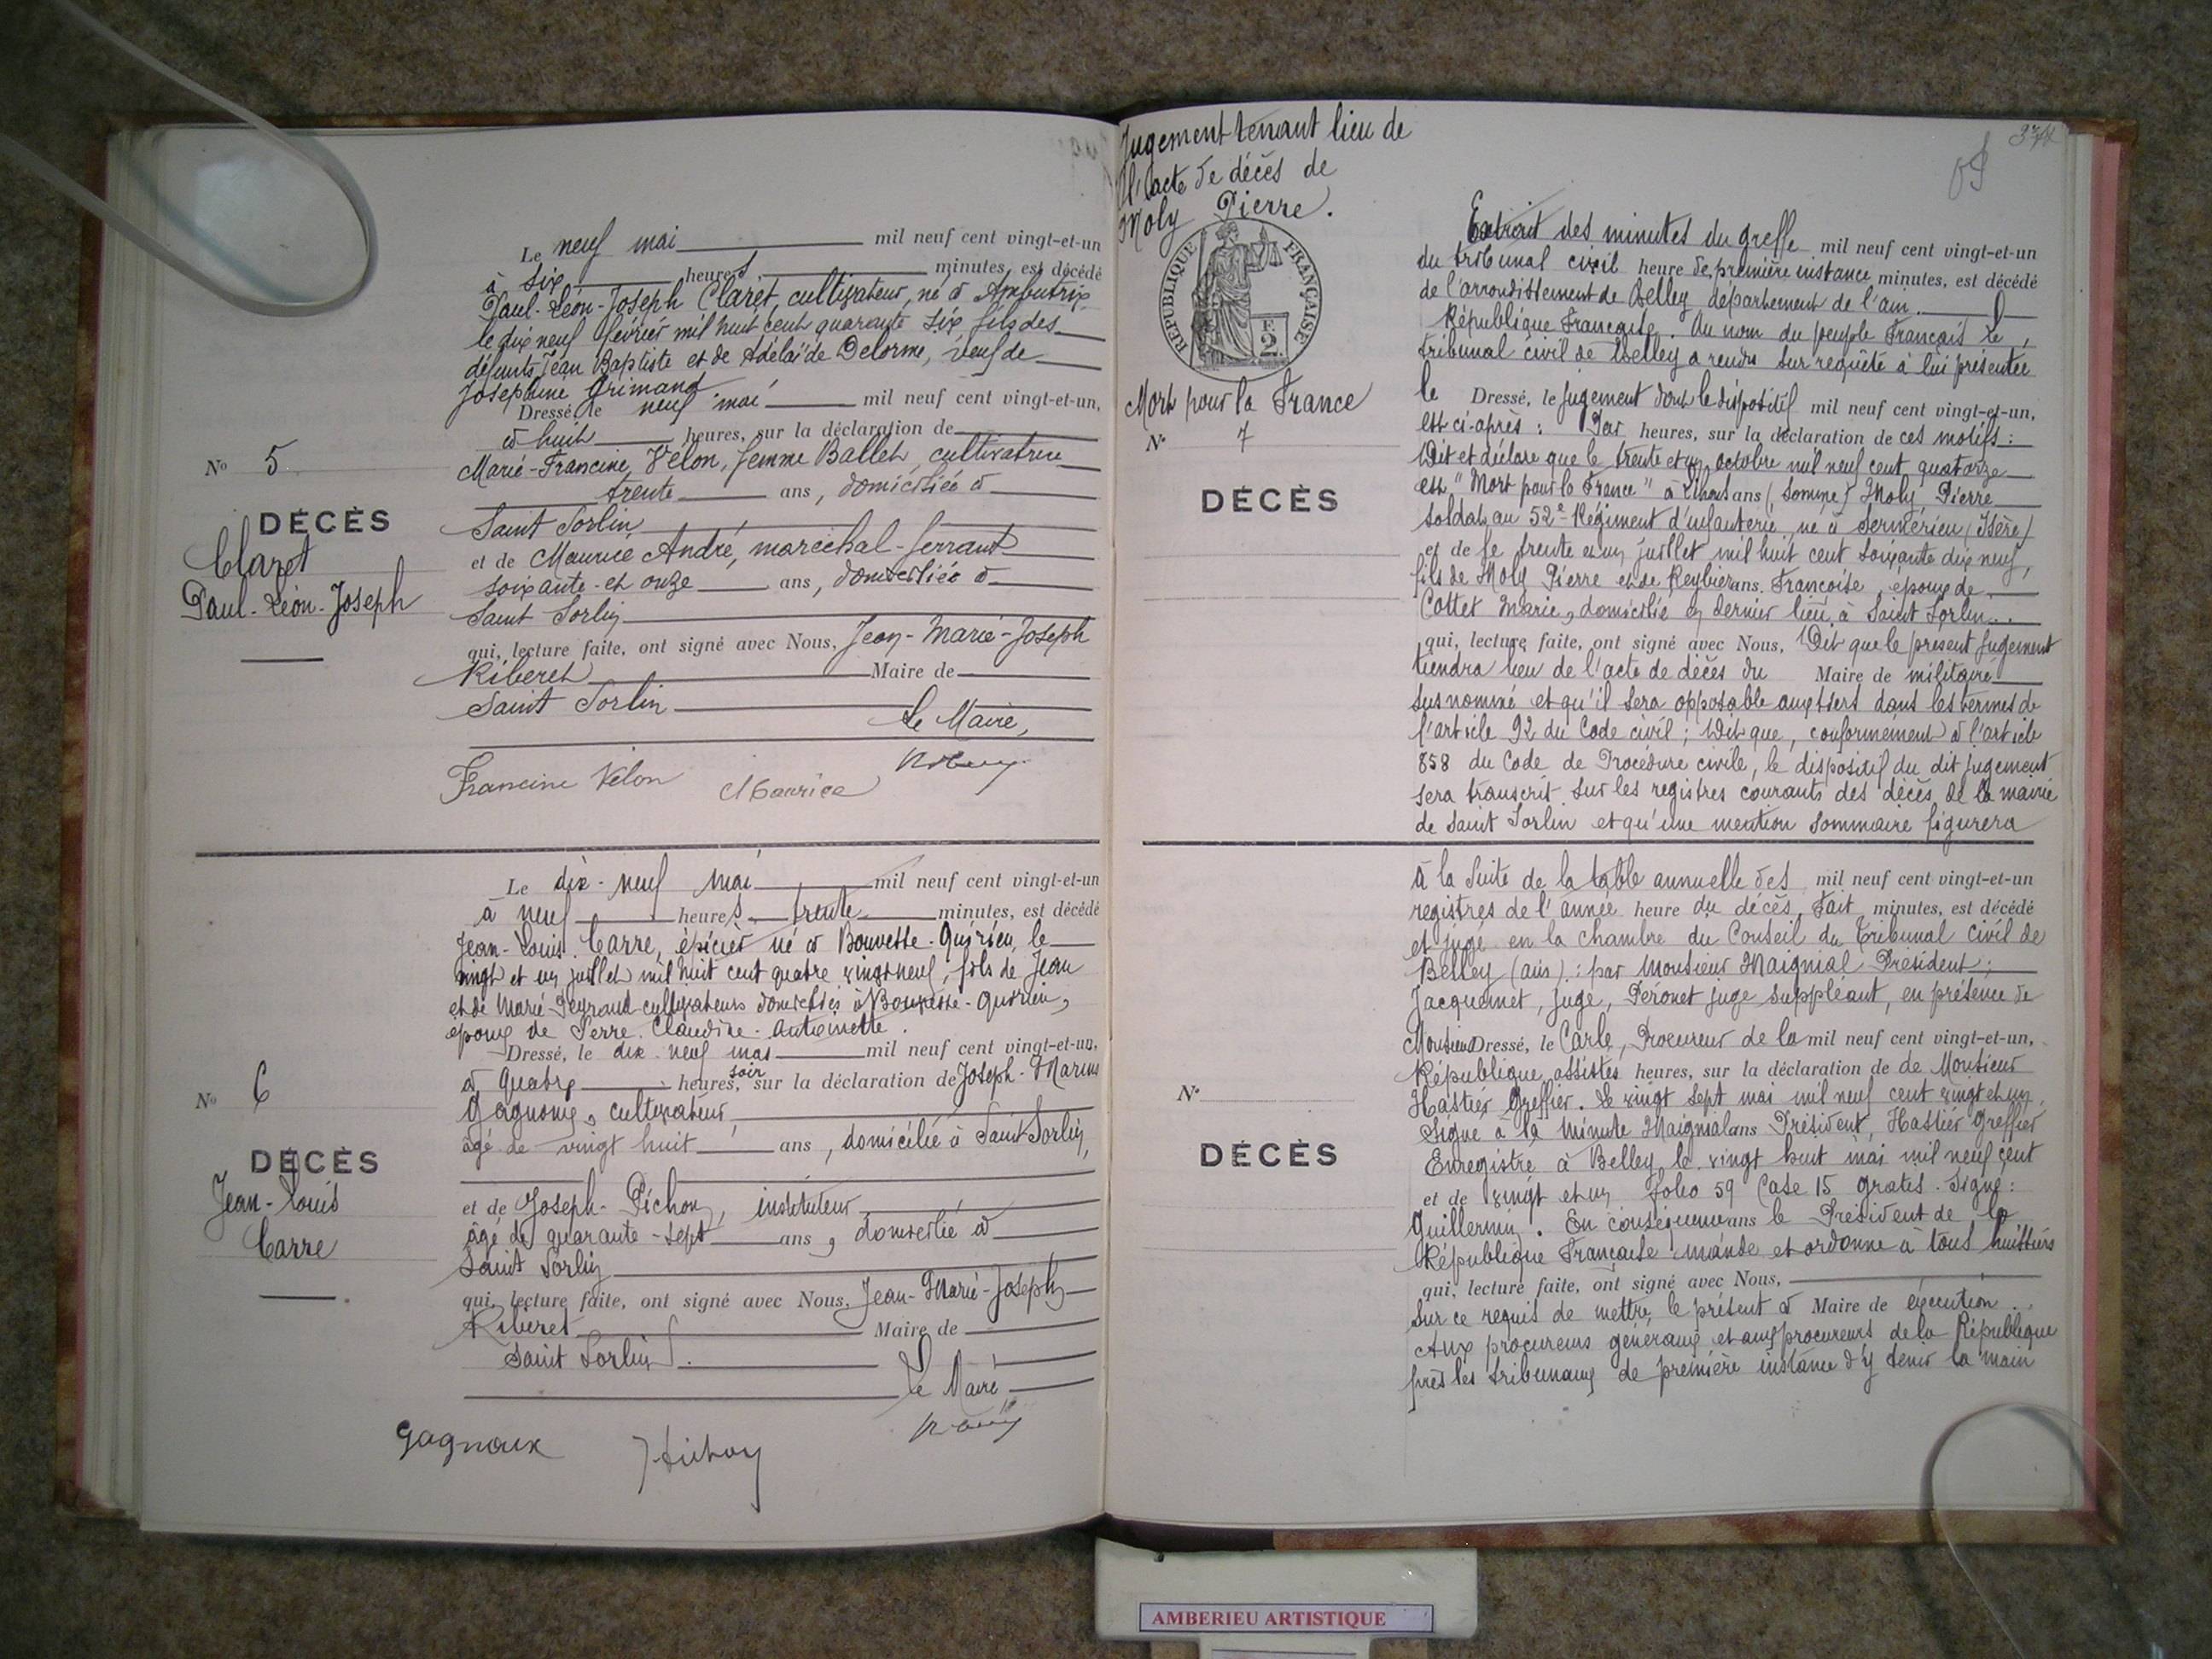 Le neuf mai mil neuf cent vingt-et-un
à six heures, minutes, est décédé
Paul-Léon-Joseph Claret, cultivateur, né à Ambutrix
le dix neuf février mil huit cent quarante six fils des
défunts Jean Baptiste et de Adélaïde Delorme, veuf de
Joséphine Grimand
Dressé le neuf mai mil neuf cent vingt-et-un,
à huit heures, sur la déclaration de
Marie-Francine Vélon, femme Ballet, cultivatrice
trente ans, domiciliée à
Saint Sorlin
et de Maurice André, maréchal-ferrant
soixante-et onze ans, domiciliée à
Saint Sorlin
qui, lecture faite, ont signé avec Nous, Jean-Marie-Joseph
Riberet Maire de
Saint Sorlin
Le Maire,
Francine Velon Maurice
No 5
DÉCÈS
Claret
Paul-Léon-Joseph
Le dix-neuf mai mil neuf cent vingt-et-un
à neuf heures trente minutes, est décédé
Jean-Louis Carre, épicier né à Bouvesse-Quirieu, le
vingt et un juillet mil huit cent quatre vingt neuf, fils de Jean
et de Marie Peyraud cultivateurs domiciliés à Bouvesse-Quirieu,
époux de Serre Claudine-Antoinette.
Dressé, le dix-neuf mai mil neuf cent vingt-et-un,
à quatre heures, soir sur la déclaration de Joseph-Marius
Gagnoux, cultivateur,
âgé de vingt huit ans, domiciliée à Saint Sorlin,
et de Joseph Pichon, instituteur
âgé de quarante-sept ans, domicilié à
Saint Sorlin
qui, lecture faite, ont signé avec Nous, Jean-Marie-Joseph
Riberet Maire de
Saint Sorlin.
Le Maire
Gagnoux
No 6
DÉCÈS
Jean-Louis
Carre
Jugement tenant lieu de
l'acte de décès de
Moly Pierre.
RÉPUBLIQUE FRANÇAISE
F.
2.
Mort pour la France
No 7
DÉCÈS
374
Extrait des minutes du greffe mil neuf cent vingt-et-un
du tribunal civil heure de première instance minutes, est décédé
de l'arrondissement de Belley département de l'ain.
République Française. Au nom du peuple Français le
tribunal civil de Belley a rendu sur requête à lui présentée
le Dressé, le jugement dont le dispositif mil neuf cent vingt-et-un,
est ci-après: Par heures, sur la déclaration de ces motifs:
Dit et déclare que le trente et un octobre mil neuf cent quatorze
est "Mort pour la France" à Lihons ans (Somme) Moly Pierre
soldat au 52e Régiment d'infanterie, né à Sermérieu (Isère)
et de le trente et un juillet mil huit cent soixante dix neuf,
fils de Moly Pierre et de Reybier ans Françoise, époux de
Cottet Marie, domicilié en dernier lieu à Saint Sorlin.
qui, lecture faite, ont signé avec Nous, Dit que le présent jugement
tiendra lieu de l'acte de décès du Maire de militaire
susnommé et qu'il sera opposable aux tiers dans les termes de
l'article 92 du Code civil; Dit que, conformément à l'article
858 du Code de Procédure civile, le dispositif du dit jugement
sera transcrit sur les registres courants des décès de la mairie
de Saint Sorlin et qu'une mention sommaire figurera
à la suite de la table annuelle des mil neuf cent vingt-et-un
registres de l'année heure du décès. Fait minutes, est décédé
et jugé en la chambre du Conseil du Tribunal civil de
Belley (ain): par Monsieur Maignial Président;
Jacquemet, juge, Péronet juge suppléant, en présence de
Monsieur Dressé, le Carle, Procureur de la mil neuf cent vingt-et-un,
République assistés heures, sur la déclaration de de Monsieur
Hastier Greffier. Le vingt sept mai mil neuf cent vingt et un.
Signé à la minute Maignial ans Président, Hastier Greffier
Enregistré à Belley le vingt huit mai mil neuf cent
et de vingt et un folio 59 Case 15 gratis. Signé:
Guillermin. En conséquence ans le Président de la
République Française mande et ordonne à tous huissiers
qui, lecture faite, ont signé avec Nous,
sur ce requis de mettre le présent à Maire de exécution.
Aux procureurs généraux et aux procureurs de la République
près les tribunaux de première instance d'y tenir la main
No
DÉCÈS
AMBERIEU ARTISTIQUE